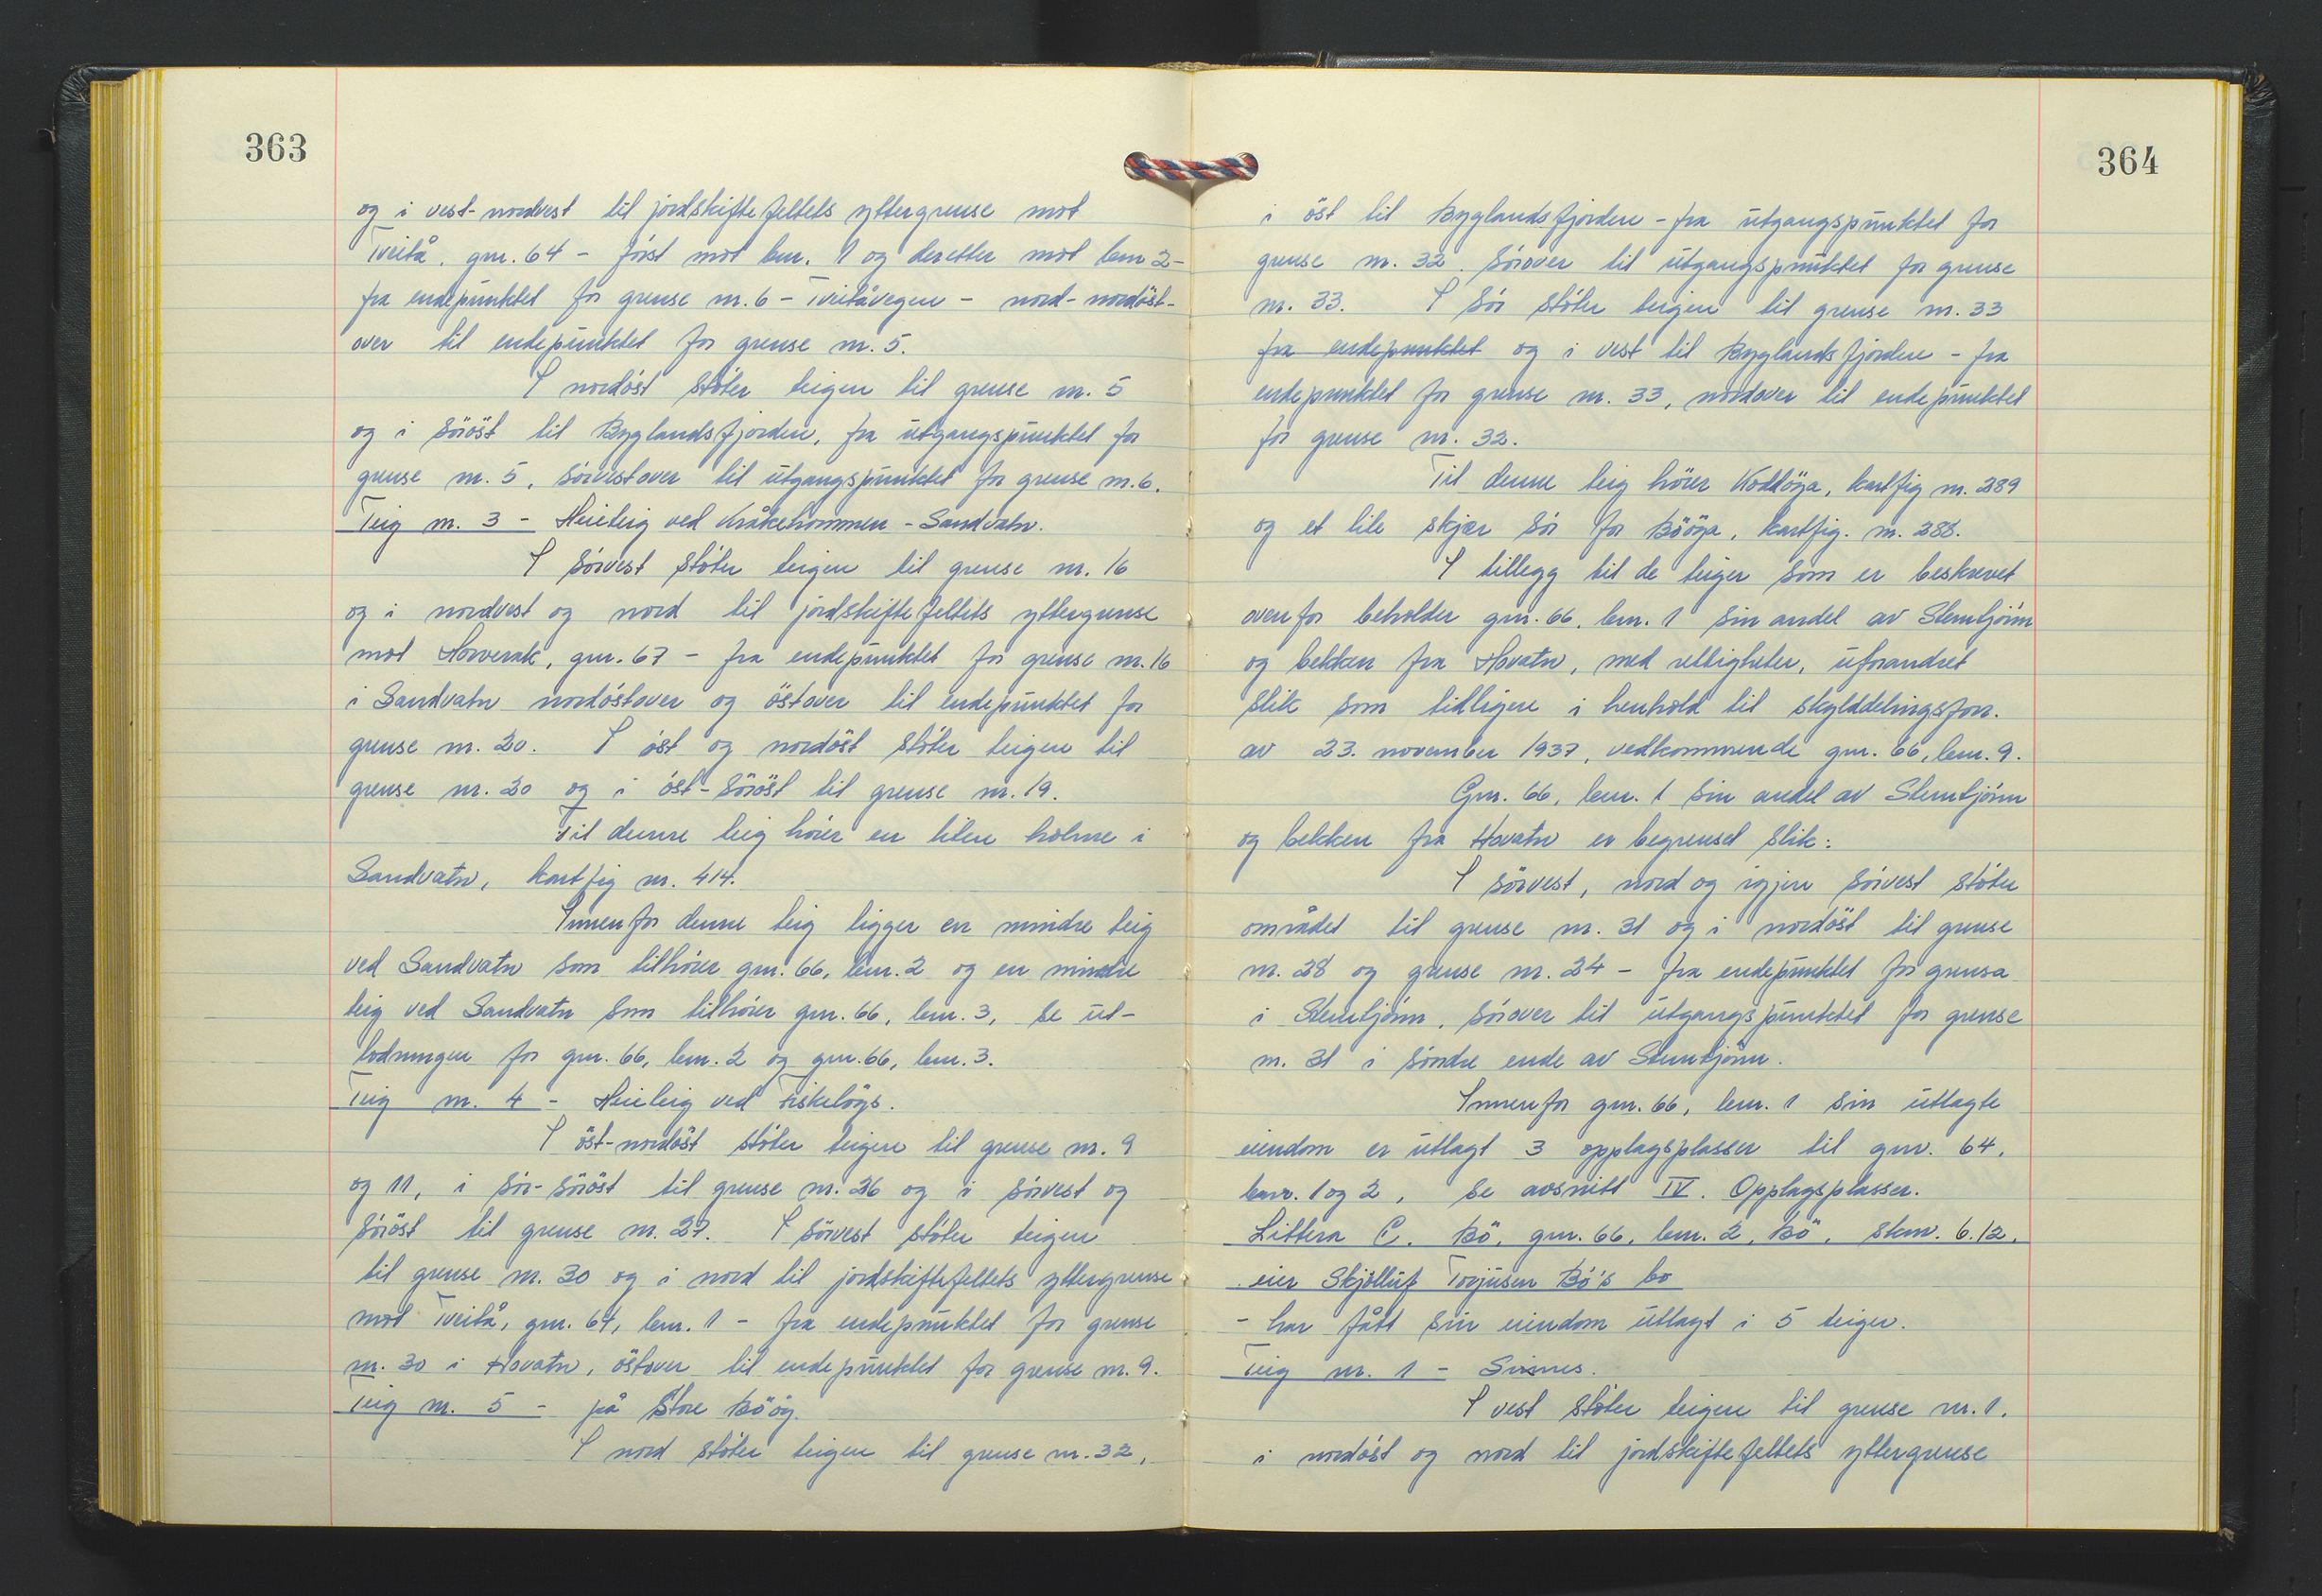 363
og i vest-nordvest til jordskiftefeltets yttergrense mot
Tveitå, gnr. 64 - först mot bnr. 1 og deretter mot bnr 2 -
fra endepunktet for grense nr. 6 - Tveitåvegen - nord-nordöst-
over til endepunktet for grense nr. 5.
I nordöst stöter teigen til grense nr. 5
og i söröst til Byglandsfjorden, fra utgangspunktet for
grense nr. 5, sörvestover til utgangspunktet for grense nr. 6.
Teig nr. 3 - Heieteig ved Kråkehommen - Sandvatn.
I sörvest stöter teigen til grense nr. 16
og i nordvest og nord til jordskiftefeltets yttergrense
mot Horverak, gnr. 67 - fra endepunktet for grense nr. 16
i Sandvatn nordöstover og östover til endepunktet for
grense nr. 20. I öst og nordöst stöter teigen til
grense nr. 20 og i öst-söröst til grense nr. 19.
Til denne teig hörer en liten holme i
Sandvatn, kartfig nr. 414.
Innenfor denne teig ligger en mindre teig
ved Sandvatn som tilhörer gnr. 66, bnr. 2 og en mindre
teig ved Sandvatn som tilhörer gnr. 66, bnr. 3, se ut-
lodningen for gnr. 66, bnr. 2 og gnr. 66, bnr. 3.
Teig nr. 4 - Heieteig ved Fiskelögs.
I öst-nordöst stöter teigen til grense nr. 9
og 11, i sör-söröst til grense nr. 26 og i sörvest og
söröst til grense nr. 27. I sörvest stöter teigen
til grense nr. 30 og i nord til jordskiftefeltets yttergrense
mot Tveitå, gnr. 64, bnr. 1 - fra endepunktet for grense
nr. 30 i Hovatn, östover til endepunktet for grense nr. 9.
Teig nr. 5 - på Store Böög.
I nord stöter teigen til grense nr. 32,
364
i öst til Byglandsfjorden - fra utgangspunktet for
grense nr. 32. Sörover til utgangspunktet for grense
nr. 33. I sör stöter teigen til grense nr. 33
fra endepunktet og i vest til Byglandsfjorden - fra
endepunktet for grense nr. 33, nordover til endepunktet
for grense nr. 32.
Til denne teig hörer Koddöya, kartfig nr. 289
og et lite skjær sör for Bööya, kartfig. nr. 288.
I tillegg til de teiger som er beskrevet
ovenfor beholder gnr. 66, bnr. 1 sin andel av Stemtjönn
og bekken fra Hovatn, med rettigheter, uforandret
slik som tidligere i henhold til skylddelingsforr.
av 23. november 1937, vedkommende gnr. 66, bnr. 9.
Gnr. 66, bnr. 1 sin andel av Stemtjönn
og bekken fra Hovatn er begrenset slik:
I sörvest, nord og igjen sörvest stöter
området til grense nr. 31 og i nordöst til grense
nr. 28 og grense nr. 24 - fra endepunktet for grensa
i Stemtjönn, sörover til utgangspunktet for grense
nr. 31 i söndre ende av Stemtjönn.
Innenfor gnr. 66, bnr. 1 sin utlagte
eiendom er utlagt 3 opplagsplasser til gnr. 64,
bnr. 1 og 2, se avsnitt IV. Opplagsplasser.
Littera C. Bö, gnr. 66, bnr. 2, Bö, skm. 6.12,
eier Skjölluf Torjusen Bö's bo
- har fått sin eiendom utlagt i 5 teiger.
Teig nr. 1 - Sisnes.
I vest stöter teigen til grense nr. 1.
i nordöst og nord til jordskiftefeltets yttergrense